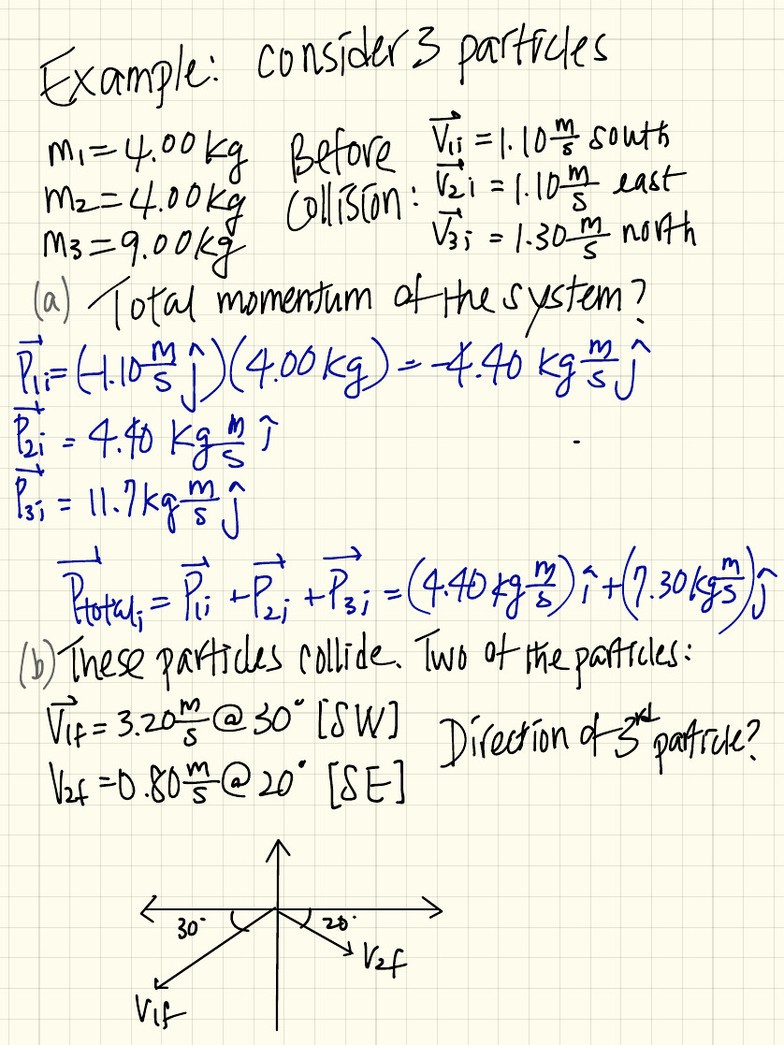 Example: consider 3 particles
m₁ = 4.00 kg Before v⃗₁ᵢ = 1.10 m/s south
m₂ = 4.00 kg Collision: v⃗₂ᵢ = 1.10 m/s east
m₃ = 9.00 kg v⃗₃ᵢ = 1.30 m/s north
(a) Total momentum of the system?
P⃗₁ᵢ = (-1.10 m/s ĵ)(4.00 kg) = -4.40 kg m/s ĵ
P⃗₂ᵢ = 4.40 kg m/s î
P⃗₃ᵢ = 11.7 kg m/s ĵ
P⃗totalᵢ = P⃗₁ᵢ + P⃗₂ᵢ + P⃗₃ᵢ = (4.40 kg m/s) î + (7.30 kg m/s) ĵ
(b) These particles collide. Two of the particles:
V⃗₁f = 3.20 m/s @ 30° [SW] Direction of 3rd particle?
V₂f = 0.80 m/s @ 20° [SE]
30° 20°
V₂f
V₁f